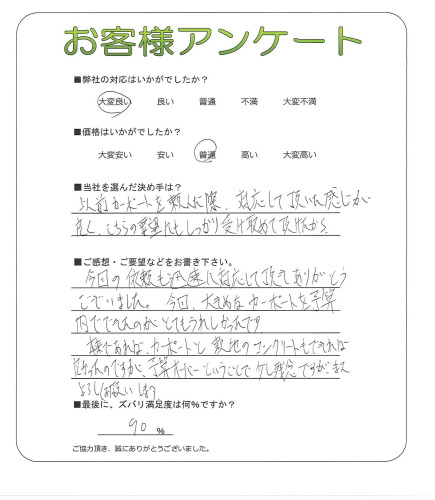 お客様アンケート
■弊社の対応はいかがでしたか？
大変良い 良い 普通 不満 大変不満
■価格はいかがでしたか？
大変安い 安い 普通 高い 大変高い
■当社を選んだ決め手は？
以前カーポートを頼んだ際、対応して頂いた感じが
良く、こちらの要望にもしっかり受け取めて頂けたから
■ご感想・ご要望などをお書き下さい。
今回の依頼も迅速に対応して頂きありがとう
ございました。今回、大きめなカーポートを予算
内でできたのがとてもうれしかったです
であれば、カーポートと敷地のコンクリートもできれば
よかったのですが、予算オーバーということで少し残念ですが、また
よろしくお願いします
■最後に、ズバリ満足度は何％ですか？
90 ％
ご協力頂き、誠にありがとうございました。